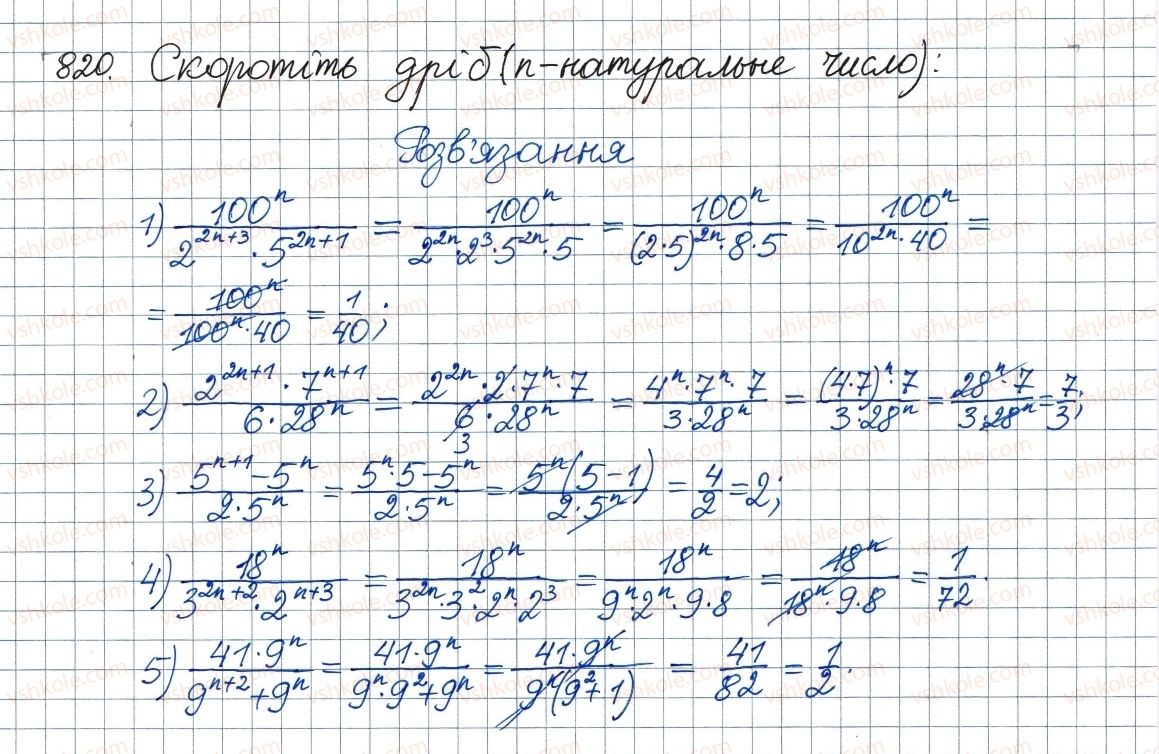 820. Скоротіть дріб (n-натуральне число):
Розв'язання
1) 100^n / (2^(2n+3) · 5^(2n+1)) = 100^n / (2^(2n) · 2^3 · 5^(2n) · 5) = 100^n / ((2·5)^(2n) · 8 · 5) = 100^n / (10^(2n) · 40) =
= 100^n / (100^n · 40) = 1/40;
2) (2^(2n+1) · 7^(n+1)) / (6 · 28^n) = (2^(2n) · 2 · 7^n · 7) / (6 · 28^n) = (4^n · 7^n · 7) / (3 · 28^n) = ((4·7)^n · 7) / (3 · 28^n) = (28^n · 7) / (3 · 28^n) = 7/3;
3
3) (5^(n+1) - 5^n) / (2 · 5^n) = (5^n · 5 - 5^n) / (2 · 5^n) = 5^n(5-1) / (2 · 5^n) = 4/2 = 2;
4) 18^n / (3^(2n+2) · 2^(n+3)) = 18^n / (3^(2n) · 3^2 · 2^n · 2^3) = 18^n / (9^n · 2^n · 9 · 8) = 18^n / (18^n · 9 · 8) = 1/72.
5) (41 · 9^n) / (9^(n+2) + 9^n) = (41 · 9^n) / (9^n · 9^2 + 9^n) = (41 · 9^n) / (9^n(9^2 + 1)) = 41/82 = 1/2.
vshkole.com